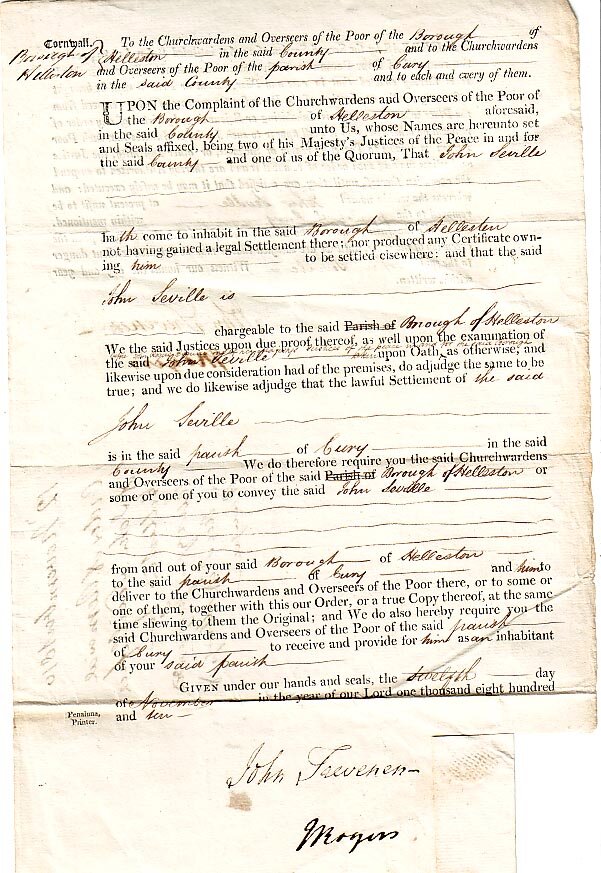 Cornwall. To the Churchwardens and Overseers of the Poor of the Borough of
Borough of Helleston in the said County and to the Churchwardens
Helleston and Overseers of the Poor of the parish of Cury
in the said County and to each and every of them.
UPON the Complaint of the Churchwardens and Overseers of the Poor of
the Borough of Helleston aforesaid,
in the said County unto Us, whose Names are hereunto set
and Seals affixed, being two of his Majesty's Justices of the Peace in and for
the said County and one of us of the Quorum, That John Seville
hath come to inhabit in the said Borough of Helleston
not having gained a legal Settlement there; nor produced any Certificate own-
ing him to be settled elsewhere: and that the said
John Seville is
chargeable to the said Parish of Borough of Helleston
We the said Justices upon due proof thereof, as well upon the examination of
the said John Seville upon Oath, as otherwise; and
likewise upon due consideration had of the premises, do adjudge the same to be
true; and we do likewise adjudge that the lawful Settlement of the said
John Seville
is in the said parish of Cury in the said
County We do therefore require you the said Churchwardens
and Overseers of the Poor of the said Parish of Borough of Helleston or
some or one of you to convey the said John Seville
from and out of your said Borough of Helleston
to the said parish of Cury and him to
deliver to the Churchwardens and Overseers of the Poor there, or to some or
one of them, together with this our Order, or a true Copy thereof, at the same
time shewing to them the Original; and We do also hereby require you the
said Churchwardens and Overseers of the Poor of the said parish
of Cury to receive and provide for him as an inhabitant
of your said parish
GIVEN under our hands and seals, the twelfth day
of November in the year of our Lord one thousand eight hundred
and ten
Penaluna,
Printer.
John Trevenen
J Rogers